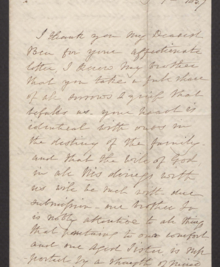 1867
I thank you My Dearest
Ben for your affectionate
letter I know My brother
that you take a full share
of all sorrows & grief that
befalls us your heart is
identical with ours in
the destiny of the family.
and that the will of God
in all His doings with
us will be met with due
submission. our brother
is attentive to all things
that pertains to our comfort
and our dear Sister is sup
ported by a strength of mind